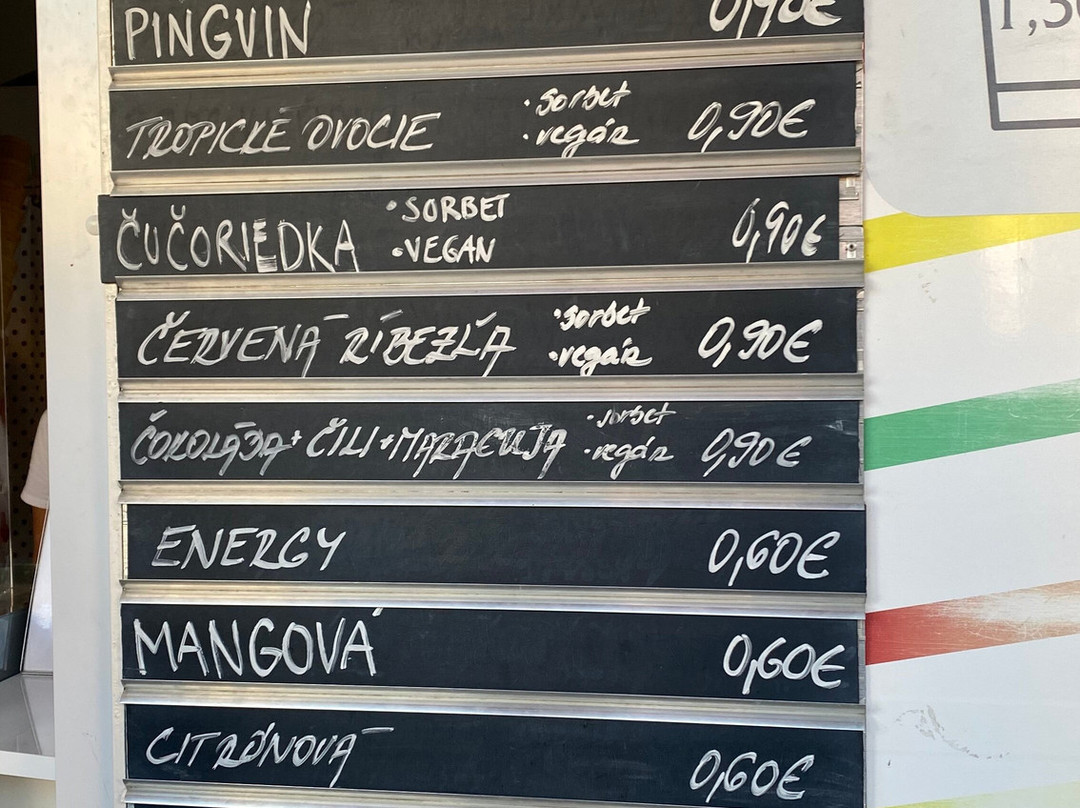 PINGVIN
TROPICKÉ OVOCIE • sorbet • vegán 0,90€
ČUČORIEDKA • SORBET • VEGAN 0,90€
ČERVENÁ RÍBEZĽA • sorbet • vegán 0,90€
ČOKOLÁDA + ČILI + MARACUJA • sorbet • vegán 0,90€
ENERGY 0,60€
MANGOVÁ 0,60€
CITRÓNOVÁ 0,60€